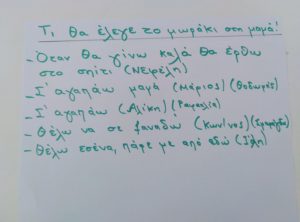 Τι θα έλεγε το μωράκι στη μαμά!
- Όταν θα γίνω καλά θα έρθω
στο σπίτι (Νεφέλη)
- Σ' αγαπάω μαμά (Μάριος) (Θοδωρής)
- Σ' αγαπάω (Αλίκη) (Ραφαελία)
- Θέλω να σε ξαναδώ (Κων/νος)
- Θέλω εσένα, πάρε με από εδώ